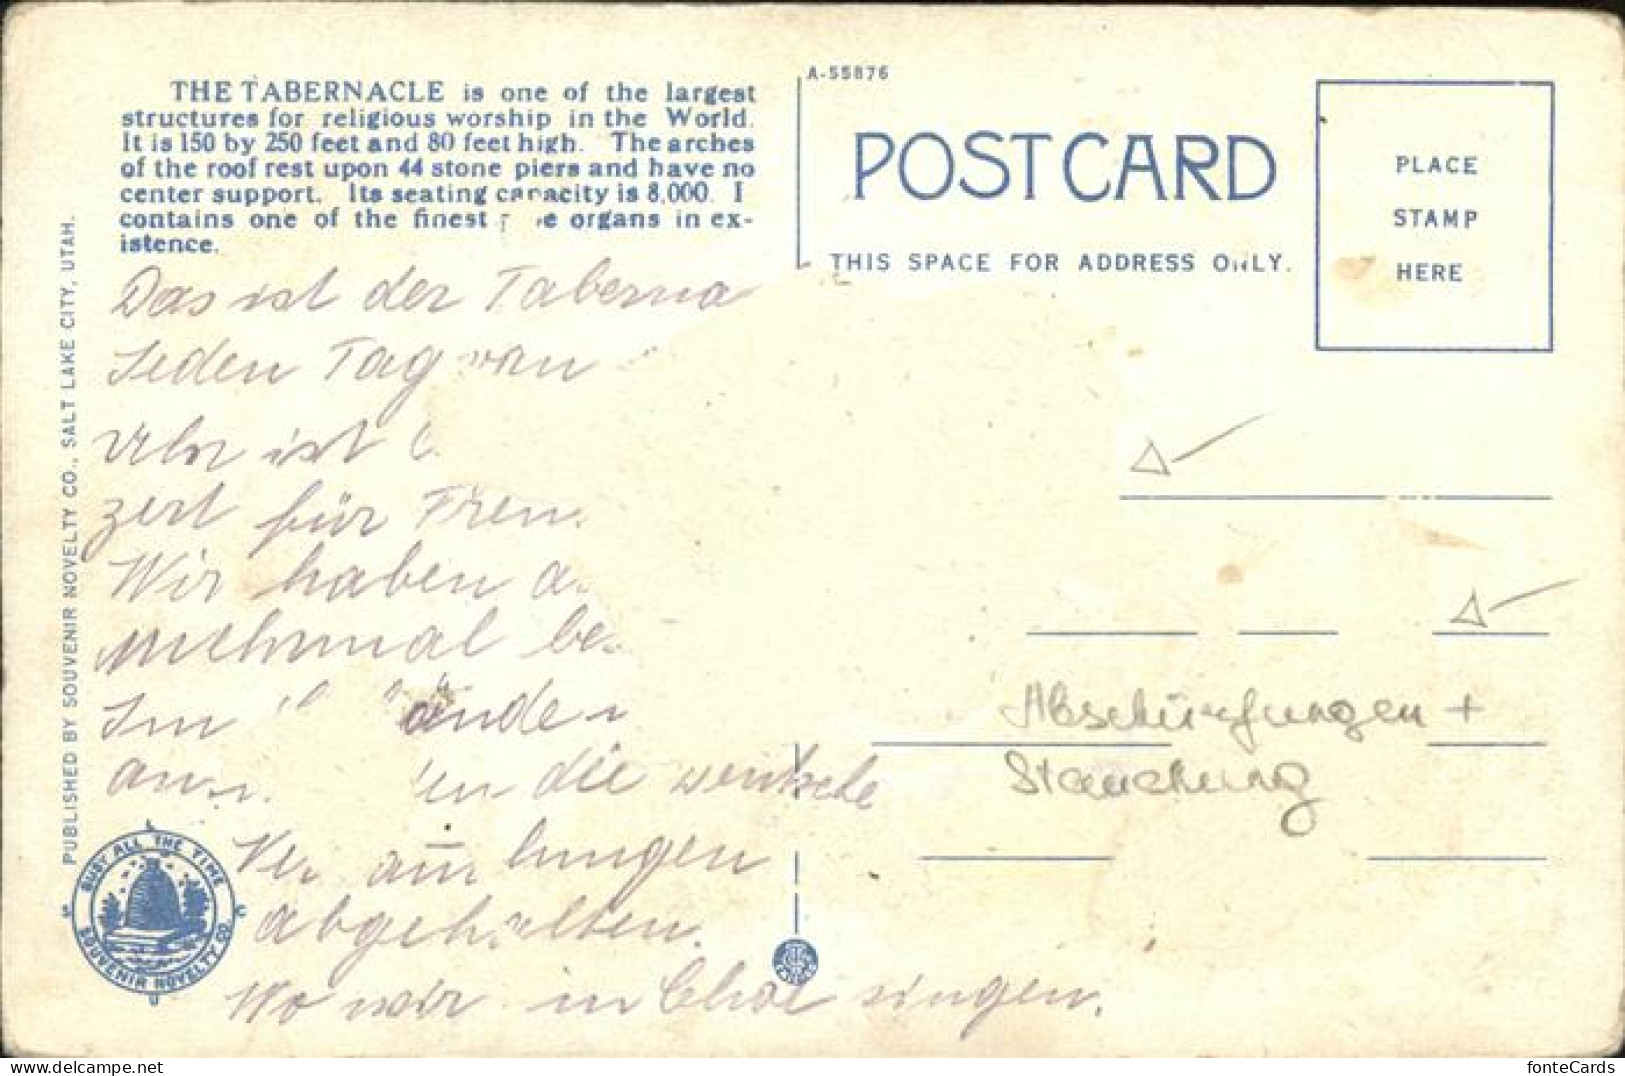 THE TABERNACLE is one of the largest
structures for religious worship in the World.
It is 150 by 250 feet and 80 feet high. The arches
of the roof rest upon 44 stone piers and have no
center support. Its seating capacity is 8,000. I
contains one of the finest organs in ex-
istence.
A-55876
POST CARD
THIS SPACE FOR ADDRESS ONLY.
PLACE
STAMP
HERE
PUBLISHED BY SOUVENIR NOVELTY CO., SALT LAKE CITY, UTAH.
Das ist der Taberna
Jeden Tag von
Uhr ist
zert für Fren
Wir haben
mehrmal be
Im
die
abgehalten.
Wo wir in Chor singen.
Abschürfungen +
Stauchung
BUSY ALL THE TIME
SOUVENIR NOVELTY CO.
S L C U
fonteCards